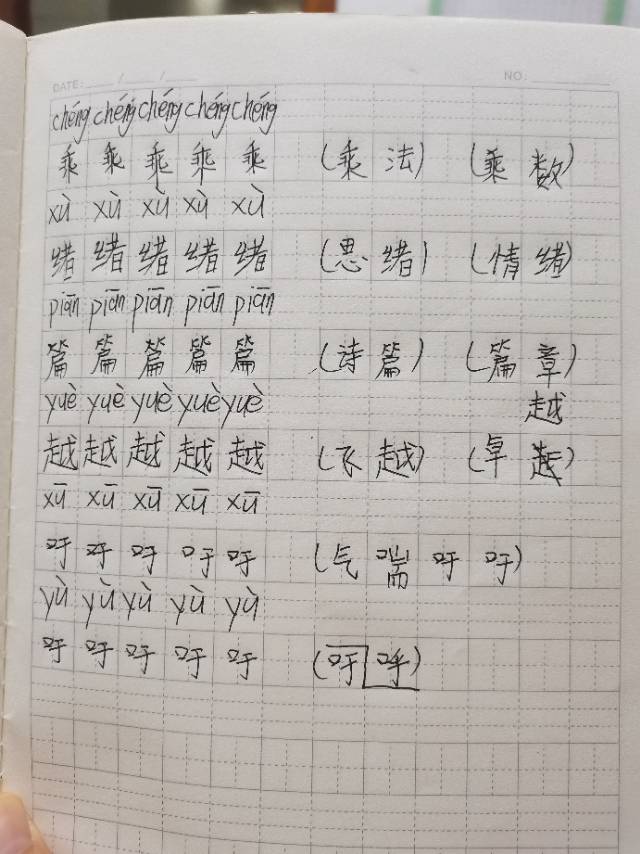 DATE: ____/____/____ NO. ____________
chéng chéng chéng chéng chéng
乘 乘 乘 乘 乘 (乘 法) (乘 数)
xù xù xù xù xù
绪 绪 绪 绪 绪 (思 绪) (情 绪)
piān piān piān piān piān
篇 篇 篇 篇 篇 (诗 篇) (篇 章)
yuè yuè yuè yuè yuè 越
越 越 越 越 越 (飞 越) (卓 越)
xū xū xū xū xū
吁 吁 吁 吁 吁 (气 喘 吁 吁)
yù yù yù yù yù
吁 吁 吁 吁 吁 (吁 呼)